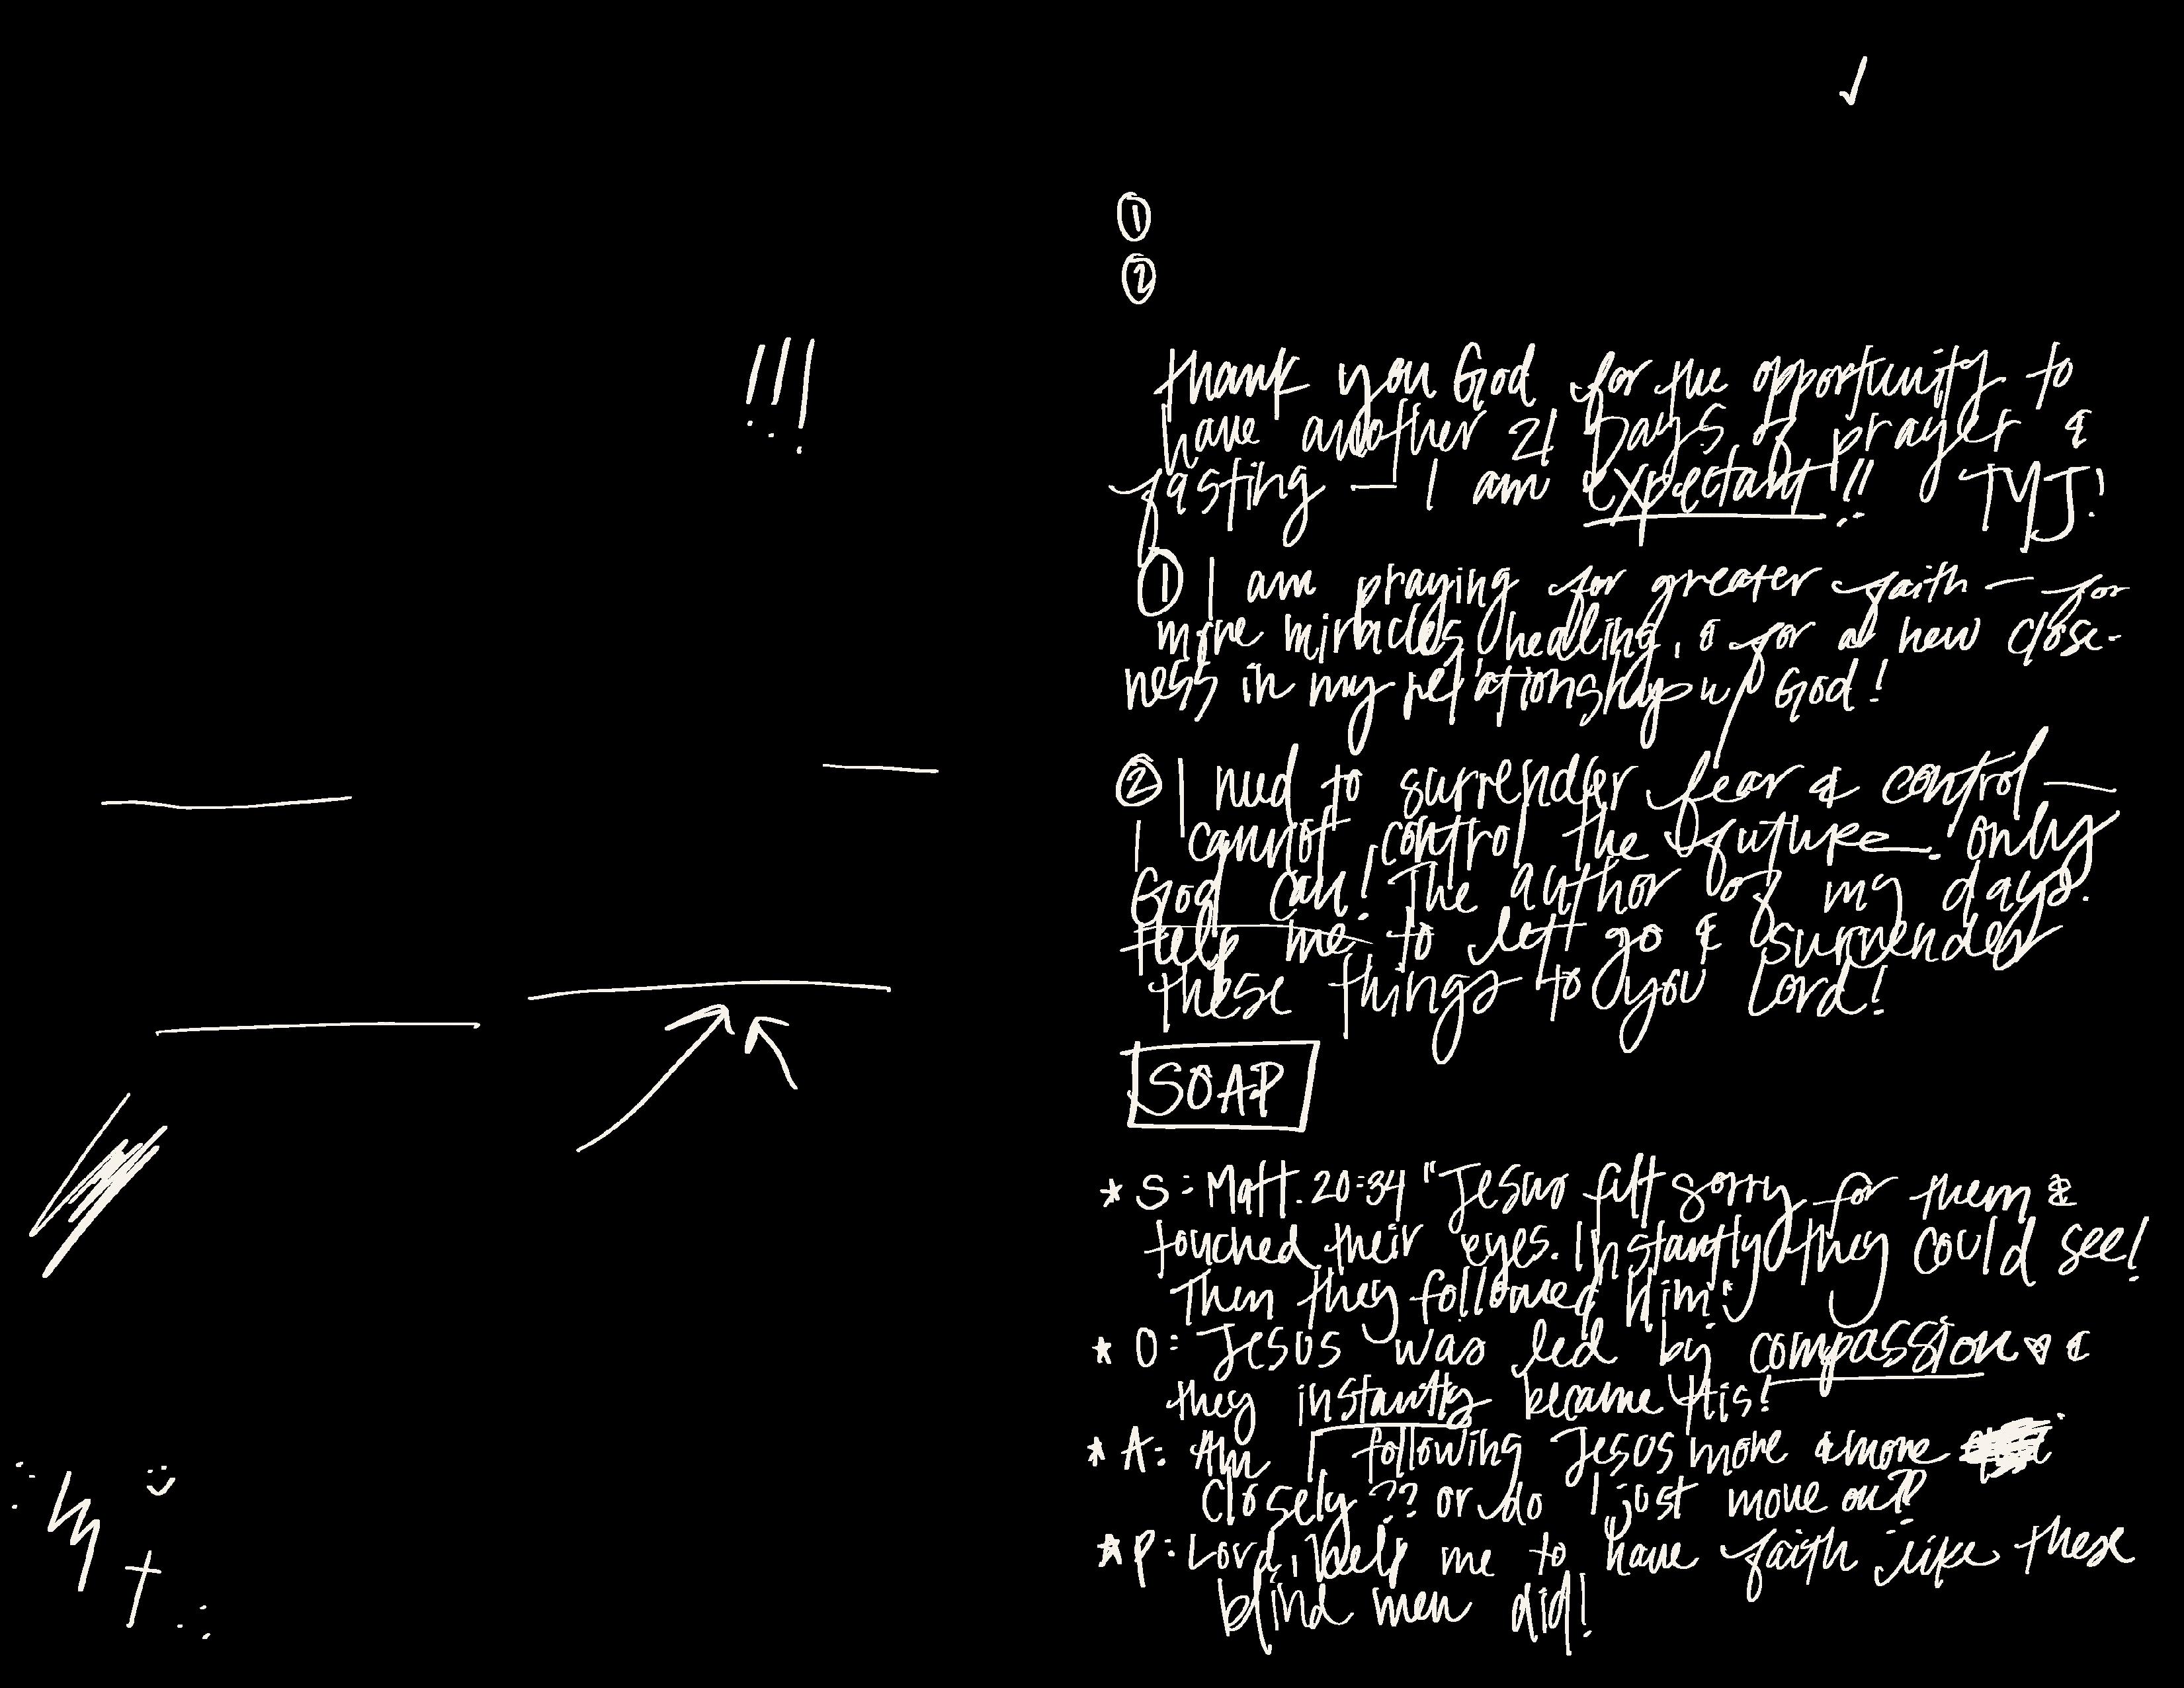 !!!
①
②
thank you God for the opportunity to
have another 21 Days of prayer &
fasting — I am expectant!! TYJ!
① I am praying for greater faith — for
more miracles, healing, & for a new close-
ness in my relationship w/ God!
② I need to surrender fear & control —
I cannot control the future. Only
God can! The author of my days.
Help me to let go & surrender
these things to you Lord!
SOAP
* S: Matt. 20:34 "Jesus felt sorry for them &
touched their eyes. Instantly they could see!
Then they followed him."
* O: Jesus was led by compassion ♡ &
they instantly became His!
* A: Am I following Jesus more & more
closely?? or do I just move on??
* P: Lord, help me to have faith like these
blind men did!